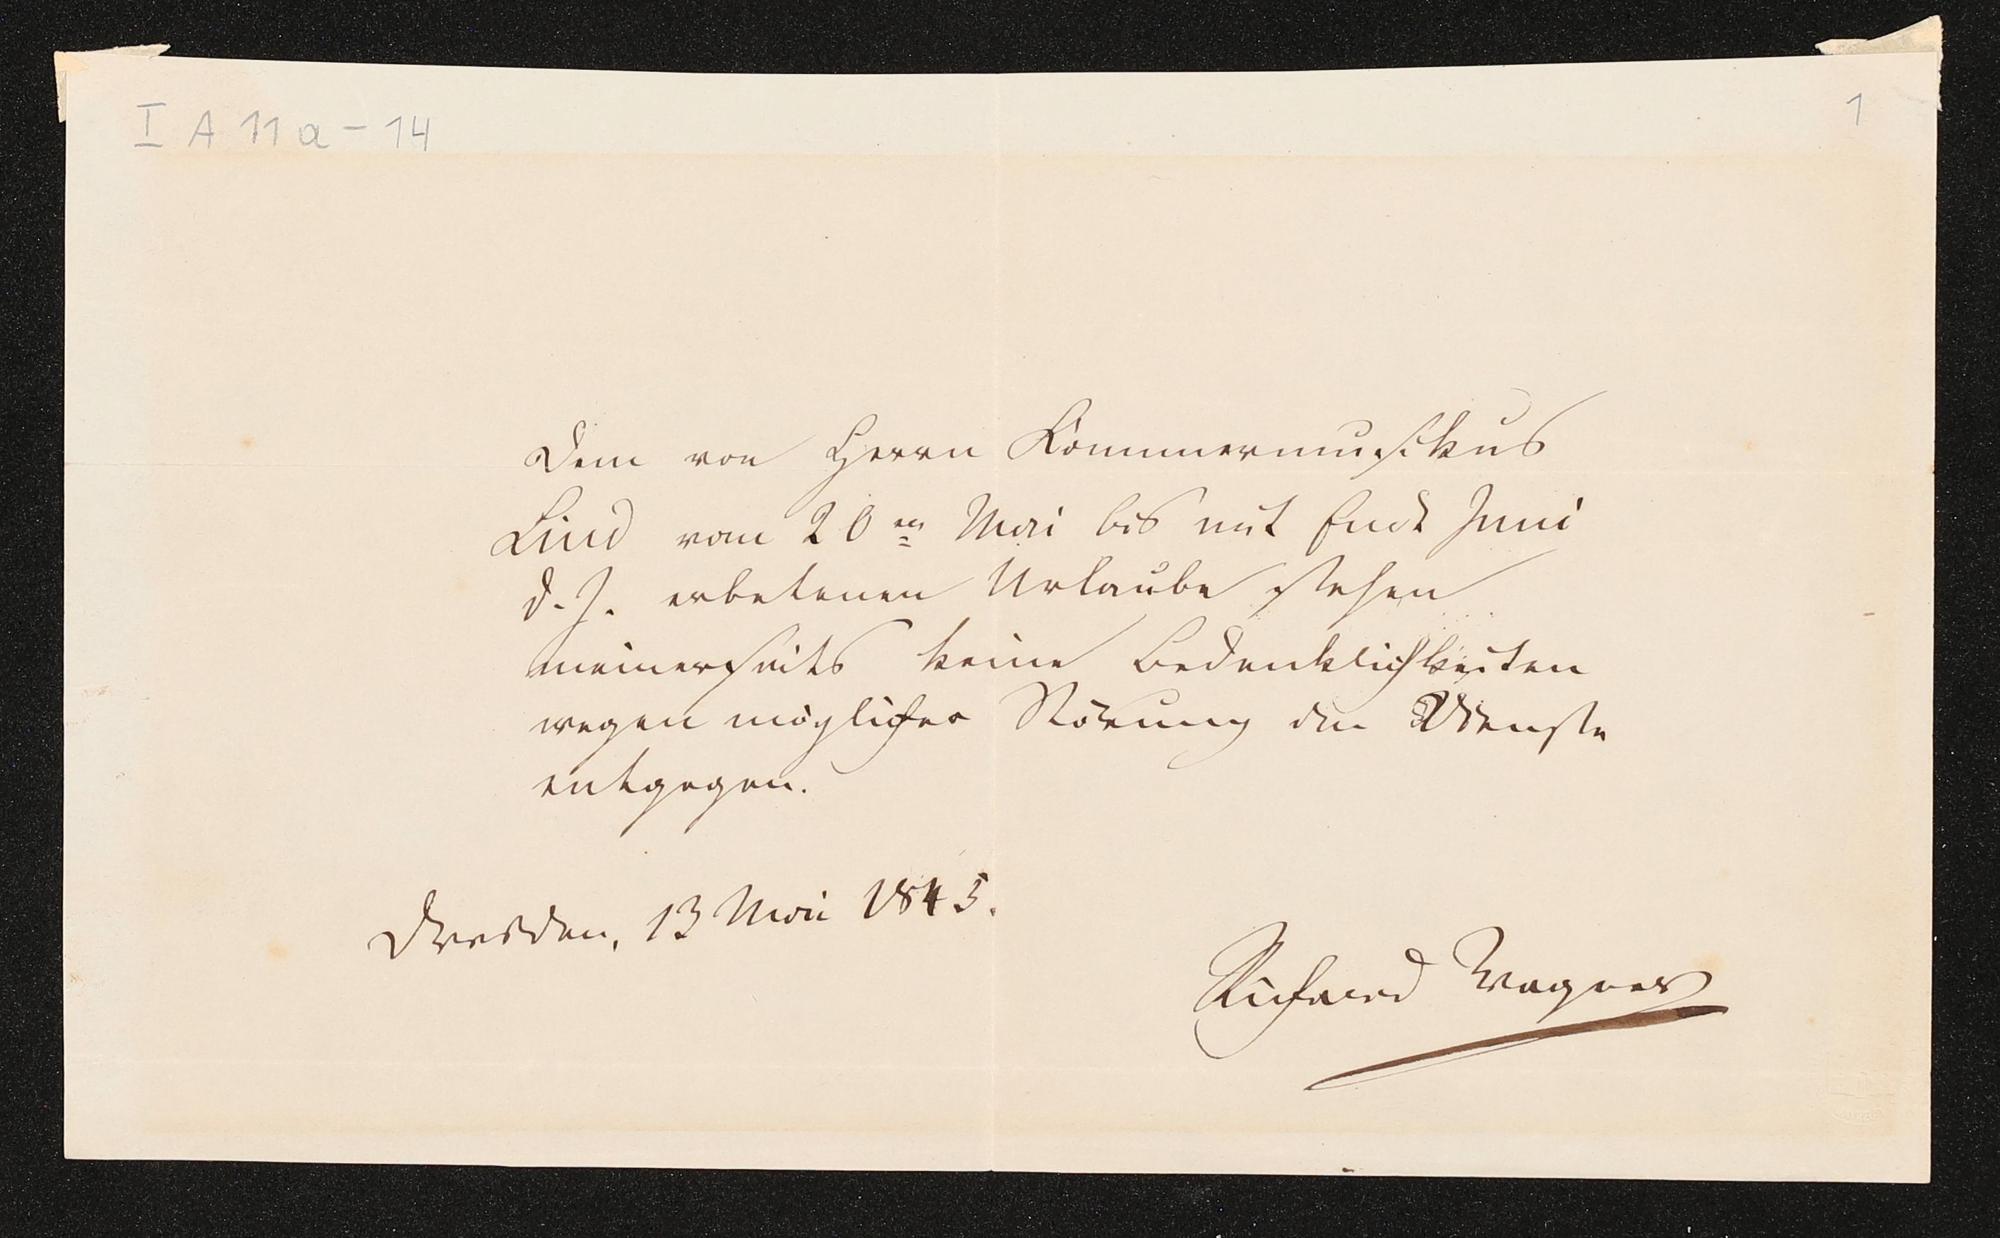 I A 11 a - 14
1
Dem von Herrn Kammermusikus
Lind vom 20en Mai bis mit Ende Juni
d. J. erbetenen Urlaube stehen
meinerseits keine Bedenklichkeiten
wegen möglicher Störung im Dienste
entgegen.
Dresden, 13 Mai 1845.
Richard Wagner